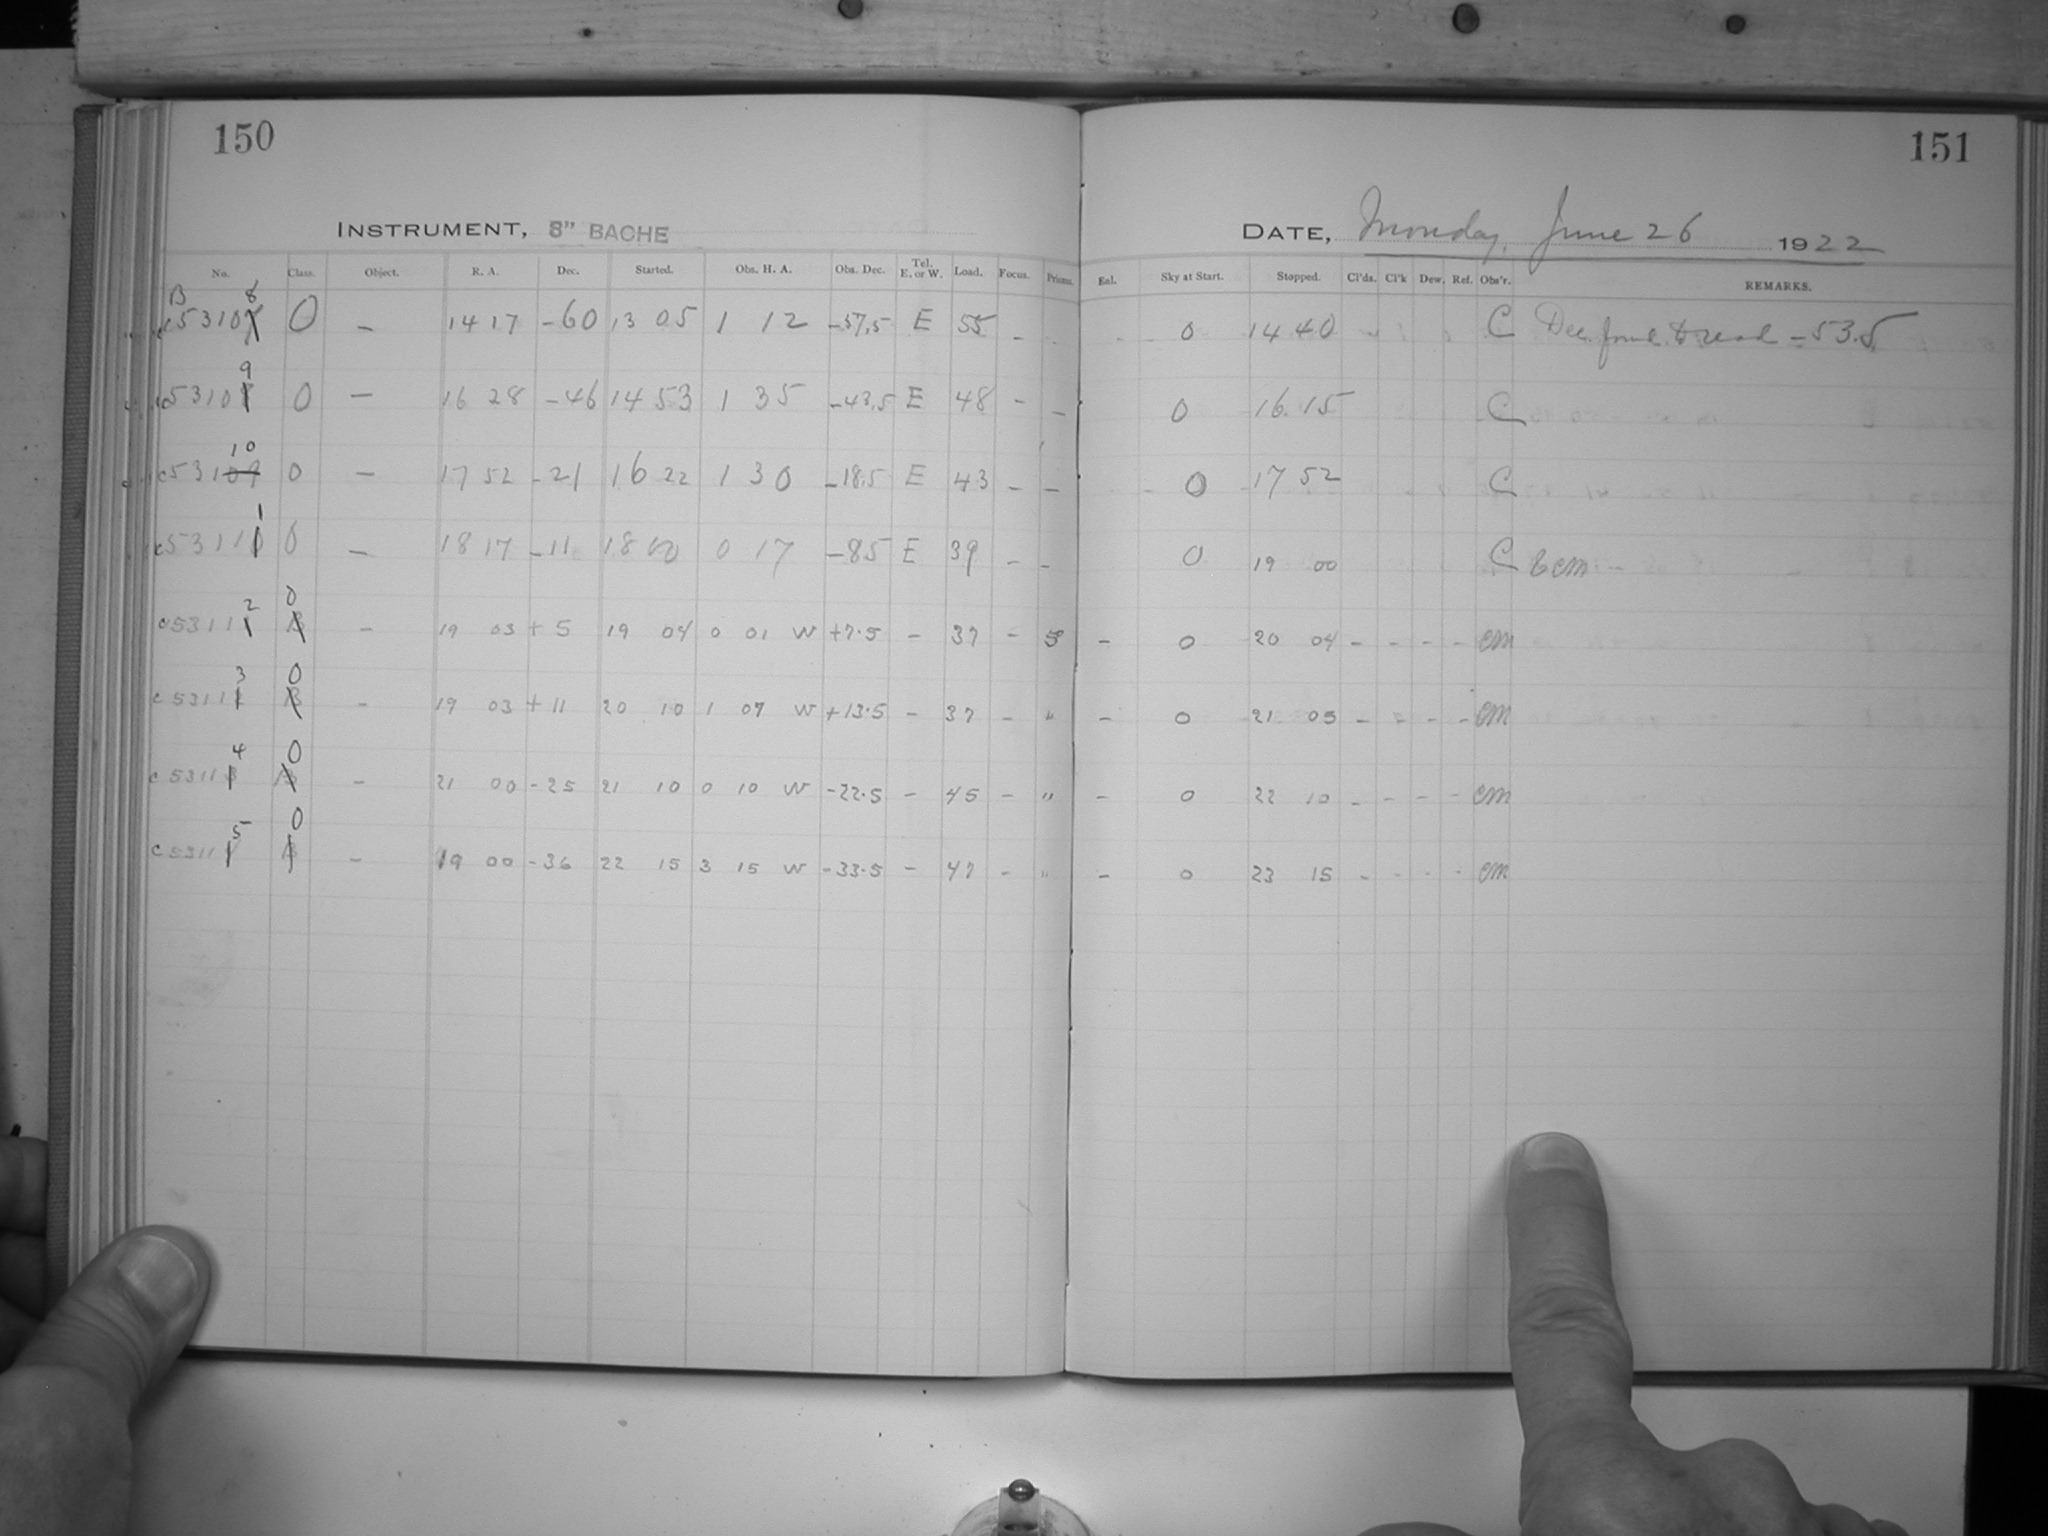 150
151
INSTRUMENT, 8" BACHE
DATE, Monday, June 26 1922
No. Class. Object. R. A. Dec. Started. Obs. H. A. Obs. Dec. Tel. E. or W. Load. Focus. Prisms. Enl. Sky at Start. Stopped. Cl'ds. Cl'k Dew. Ref. Obs'r. REMARKS.
B 8
c53107 O – 14 17 -60 13 05 1 12 -57.5 E 55 – 0 14 40 C Dec. found to read -53.5
9
c53108 O – 16 28 -46 14 53 1 35 -43.5 E 48 – – 0 16 15 C
10
c53109 0 – 17 52 -21 16 22 1 30 -18.5 E 43 – – 0 17 52 C
1
c53110 0 – 18 17 -11 18 00 0 17 -85 E 39 – – 0 19 00 C & cm
2 0
c53111 B – 19 03 +5 19 04 0 01 W +7.5 – 37 – – 0 20 04 – – – – cm
3 0
c53112 B – 19 03 +11 20 10 1 07 W +13.5 – 37 – " – 0 21 05 – – – – cm
4 0
c53113 B – 21 00 -25 21 10 0 10 W -22.5 – 45 – " – 0 22 10 – – – – cm
5 0
c53114 B – 19 00 -36 22 15 3 15 W -33.5 – 47 – " – 0 23 15 – – – – cm